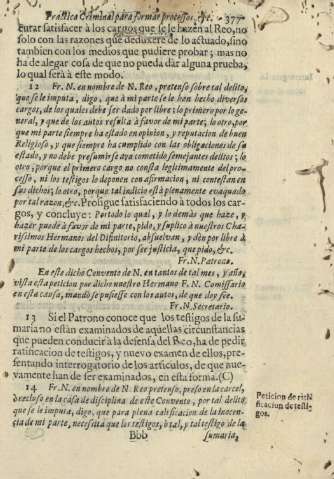 Practica Criminal para formar processos, &c. 377
curar satisfacer à los cargos que se le hazen al Reo, no
solo con las razones que deduxere de lo actuado, sino
tambien con los medios que pudiere probar; mas no
ha de alegar cosa de que no pueda dàr alguna prueba,
lo qual serà à este modo.
12 Fr. N. en nombre de N. Reo, pretenso sobre tal delito,
que se le imputa, digo, que à mi parte se le hen hecho diversos
cargos, de los quales debe ser dado por libre: lo primero por lo ge-
neral, y que de los autos resulta à favor de mi parte; lo otro, por
que mi parte siempre ha estado en opinion, y reputacion de buen
Religioso, y que siempre ha cumplido con las obligaciones de su
estado, y no debe presumirse aya cometido semejantes delitos; lo
otro; porque el primer cargo no consta legitimamente del pro-
cesso, ni los testigos lo deponen con afirmacion, ni contestan en
sus dichos; lo otro, porque tal indicio està plenamente evaquado
por tal razon, &c. Prosigue satisfaciendo à todos los car-
gos, y concluye: Por todo lo qual, y lo demàs que haze, y
hazer puede à favor de mi parte, pido, y suplico à nuestros Cha-
rissimos Hermanos del Difinitorio, absuelvan, y dèn por libre à
mi parte de los cargos hechos, por ser justicia, que pido, &c.
Fr. N. Patrono.
En este dicho Convento de N. en tantos de tal mes, y año,
vista esta peticion por dicho nuestro Hermano F. N. Comissario
en esta causa, mandò se pusiesse con los autos, de que doy fee.
Fr. N. Secretario.
13 Si el Patrono conoce que los testigos de la su-
maria no estàn examinados de aquellas circunstancias
que pueden conducir à la defensa del Reo, ha de pedir
ratificacion de testigos, y nuevo examen de ellos, pre-
sentando interrogatorio de los articulos, de que nue-
vamente han de ser examinados, en esta forma. (C)
14 Fr. N. en nombre de N. Reo pretenso, preso en la carcel,
ò recluso en la casa de disciplina de este Convento, por tal delito
que se le imputa, digo, que para plena calificacion de la inocen-
cia de mi parte, necessita que los testigos, ò tal, y tal testigo de la
Bbb sumaria,
Peticion de rati-
ficacion de testi-
gos.